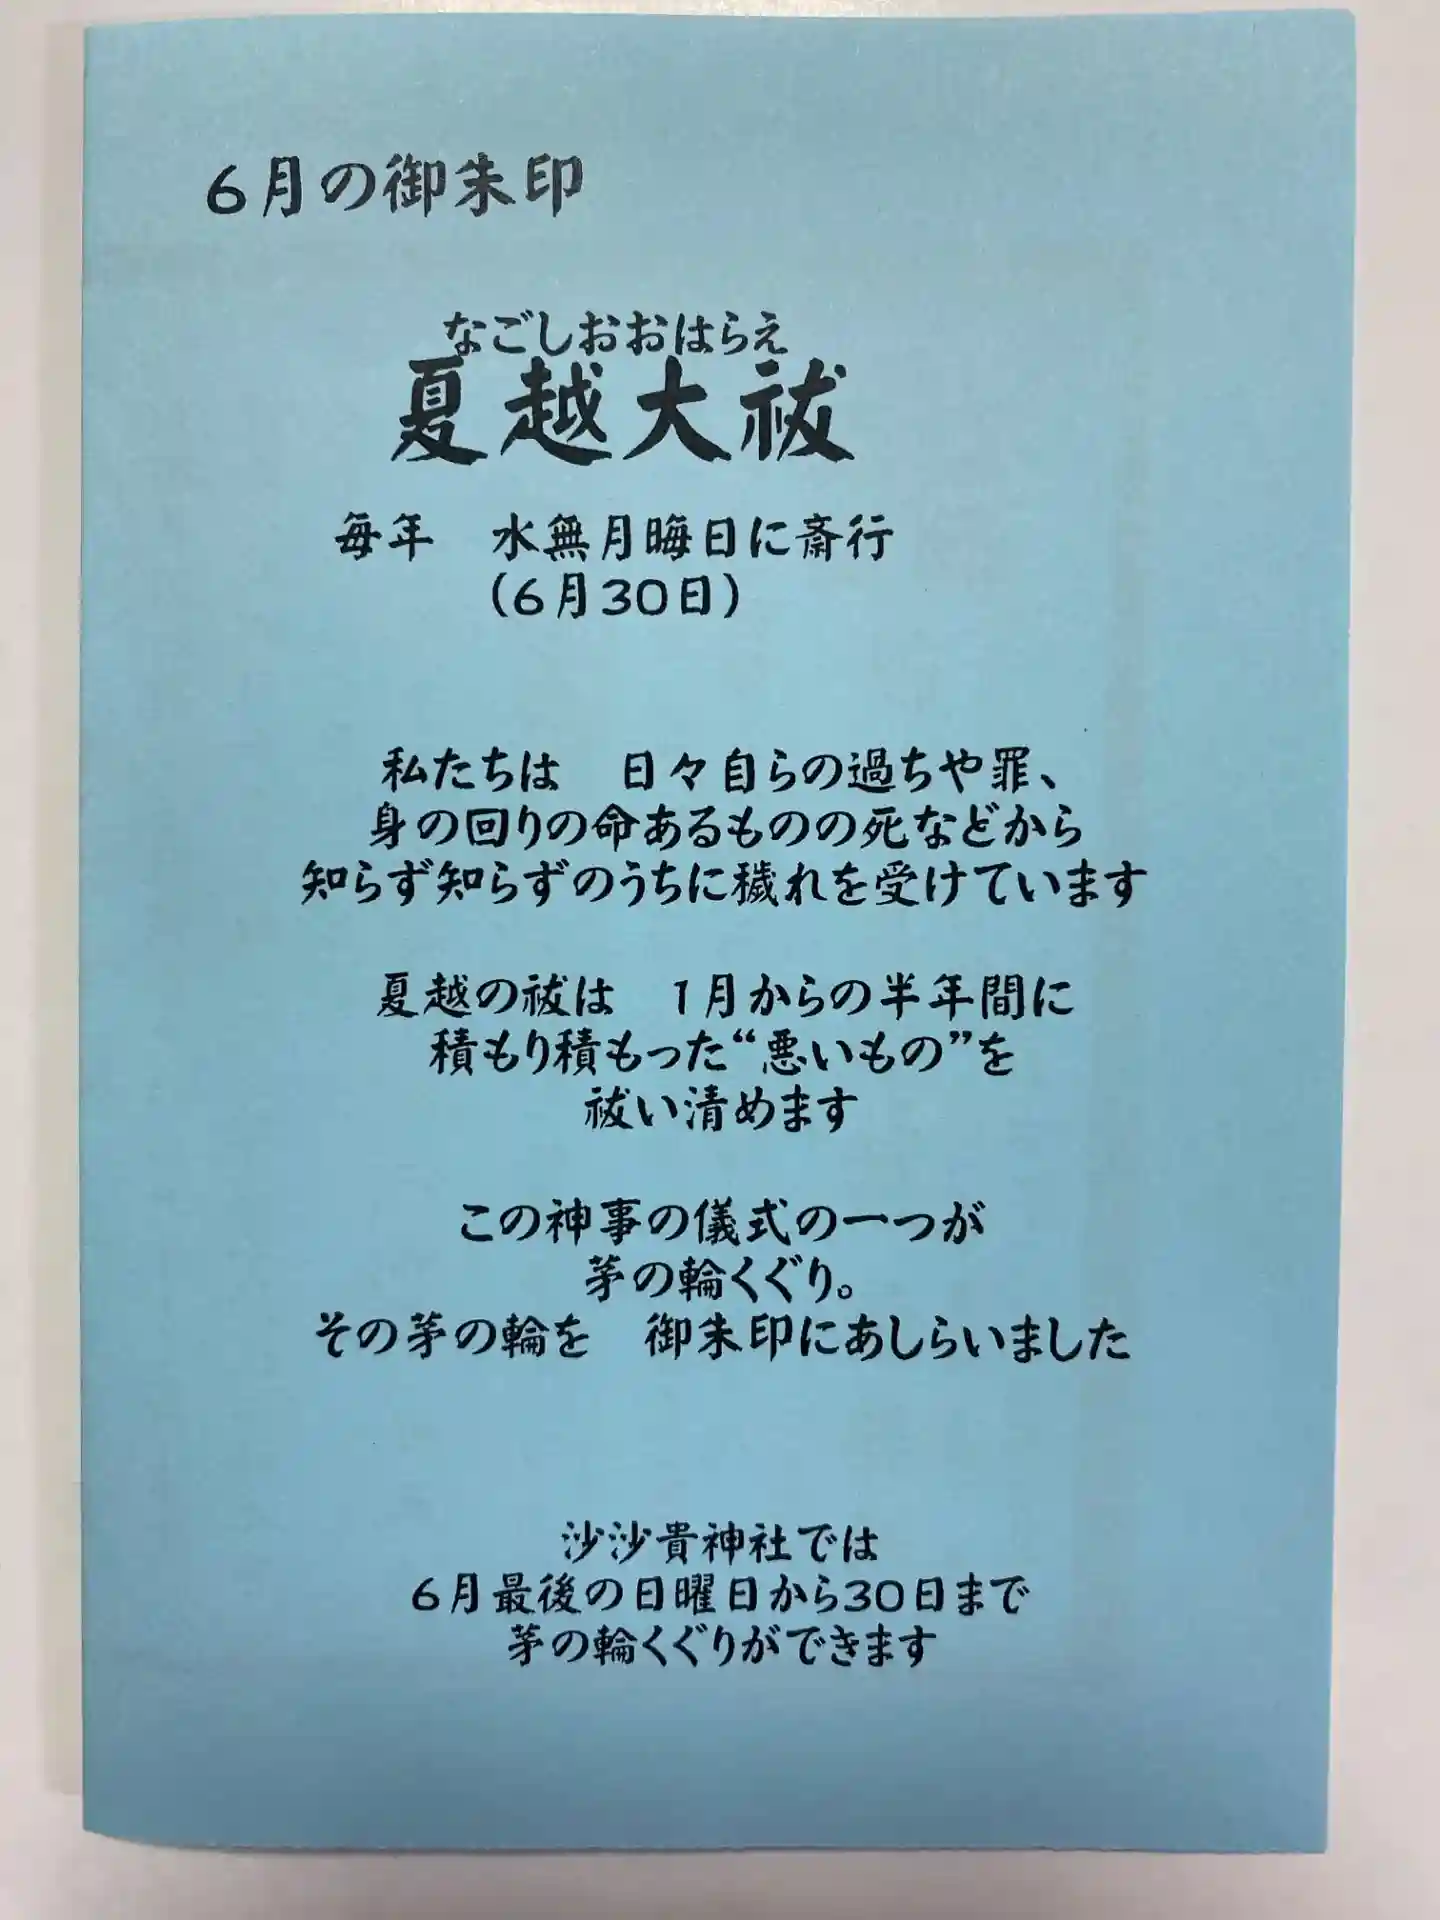 6月の御朱印
なごしおおはらえ
夏越大祓
毎年　水無月晦日に斎行
(6月30日)
私たちは　日々自らの過ちや罪、
身の回りの命あるものの死などから
知らず知らずのうちに穢れを受けています
夏越の祓は　1月からの半年間に
積もり積もった“悪いもの”を
祓い清めます
この神事の儀式の一つが
茅の輪くぐり。
その茅の輪を　御朱印にあしらいました
沙沙貴神社では
6月最後の日曜日から30日まで
茅の輪くぐりができます